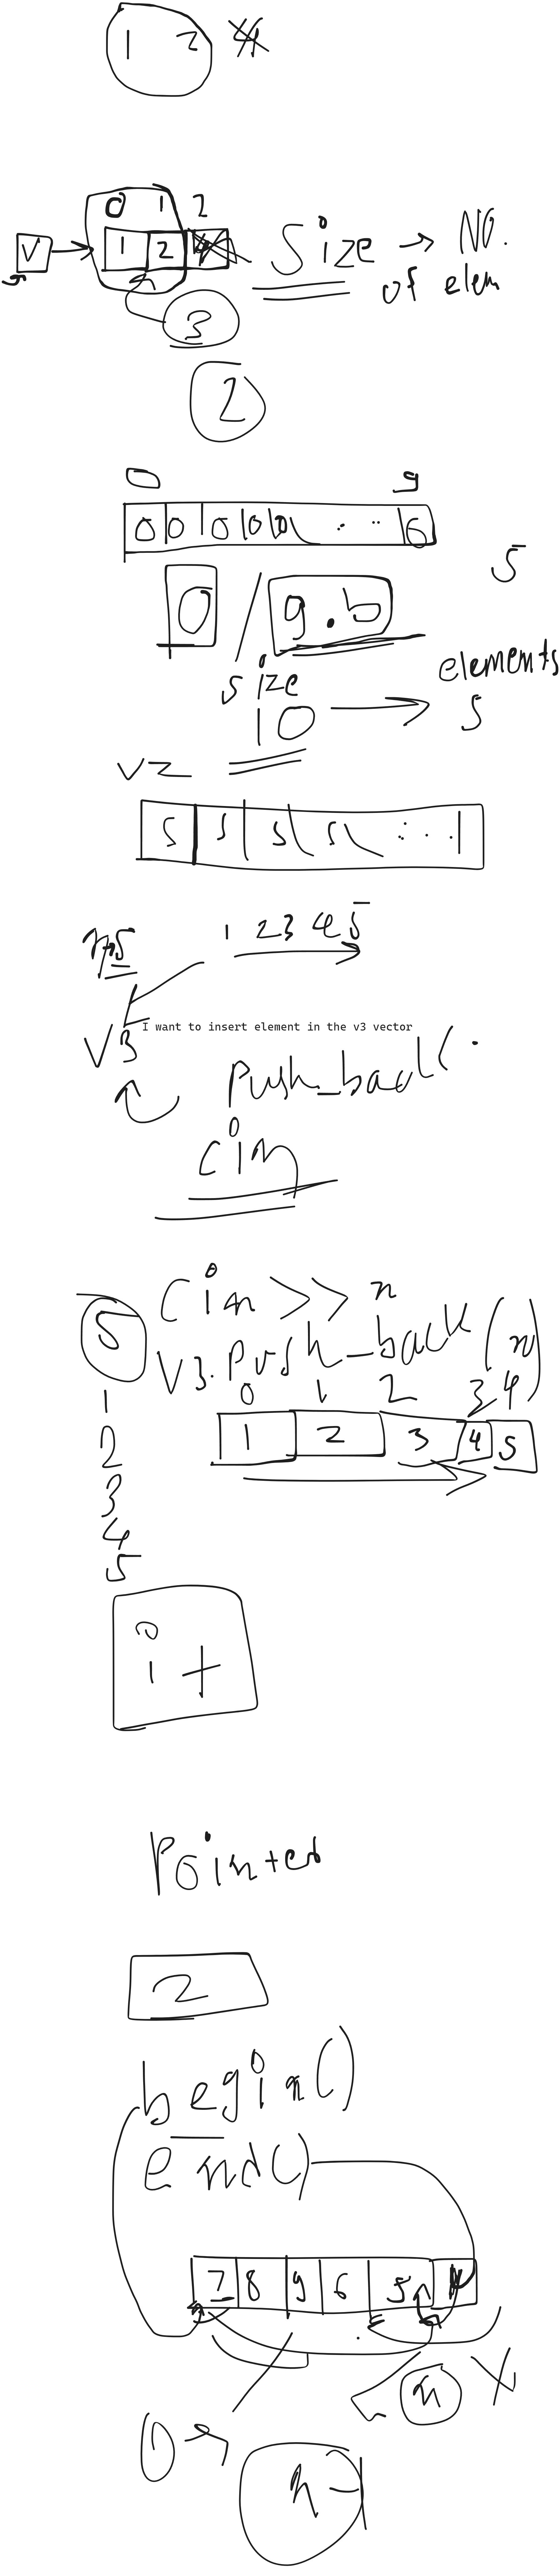 1 2
0 1 2
V 1 2 Size → No.
of elem
3
2
0 9
0 0 0 0 0 . .. 0
5
0 / g.b
size elements
10 → 5
V2
5 5 5 5 . . .
n=5 1 2 3 4 5
I want to insert element in the v3 vector
V3
Push_back( .
cin
Cin >> n
5 V3.Push_back(n)
0 1 2 3 4
1 1 2 3 4 5
2
3
4
5
it
Pointer
2
begin()
end()
7 8 9 6 5
n X
0 →
n-1